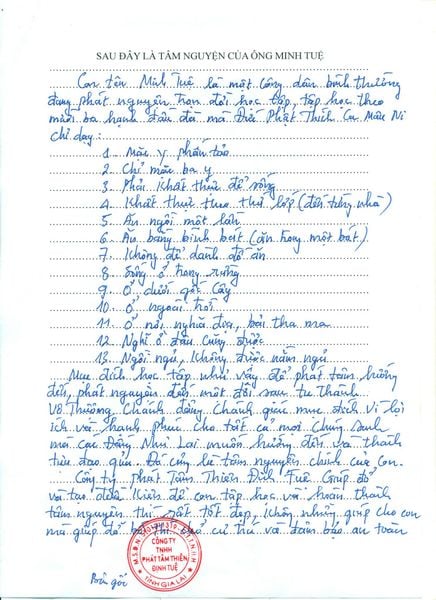 SAU ĐÂY LÀ TÂM NGUYỆN CỦA ÔNG MINH TUỆ
Con tên Minh Tuệ là một công dân bình thường
đang phát nguyện trọn đời học tập, tập học theo
mười ba hạnh đầu đà mà Đức Phật Thích Ca Mâu Ni
chỉ dạy:
1. Mặc y phấn tảo
2. Chỉ mặc ba y
3. Phải Khất thực để sống
4. Khất thực theo thứ lớp (đến từng nhà)
5. Ăn ngồi một lần
6. Ăn bằng bình bát (ăn trong một bát)
7. Không để dành đồ ăn
8. Sống ở trong rừng
9. Ở dưới gốc Cây
10. Ở ngoài trời
11. Ở nơi nghĩa địa, bãi tha ma
12. Nghỉ ở đâu cũng được
13. Ngồi ngủ, Không được nằm ngủ
Mục đích học tập như vậy để phát tâm hướng
đến, phát nguyện đến một đời sau tu thành
Vô Thượng Chánh đẳng Chánh giác mục đích vì lợi
ích và hạnh phúc cho tất cả mọi chúng sanh
mà các Đấng Như Lai muốn hướng đến và thành
tựu đạo quả. Đó cũng là tâm nguyện chính của Con.
Công ty phát Tâm Thiền Định Tuệ Giúp đỡ
và tạo điều Kiện để con tập học và hoàn thành
tâm nguyện thì rất tốt đẹp, không những giúp cho con
mà giúp đỡ bố thí chỗ cư trú và đảm bảo an toàn
CÔNG TY
TNHH
PHÁT TÂM THIỀN
ĐỊNH TUỆ
TỈNH GIA LAI